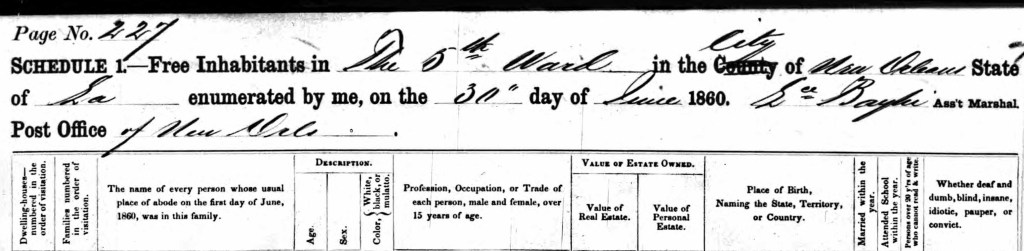 Page No. 227
SCHEDULE 1.—Free Inhabitants in The 5th Ward in the City County of New Orleans State
of La enumerated by me, on the 30" day of June 1860. Ass't Marshal.
Post Office of New Orls.
DESCRIPTION.
VALUE OF ESTATE OWNED.
Dwelling-houses—numbered in the order of visitation.
Families numbered in the order of visitation.
The name of every person whose usual
place of abode on the first day of June,
1860, was in this family.
Age.
Sex.
Color, { White, black, or mulatto.
Profession, Occupation, or Trade of
each person, male and female, over
15 years of age.
Value of
Real Estate.
Value of
Personal
Estate.
Place of Birth,
Naming the State, Territory,
or Country.
Married within the year.
Attended School within the year.
Persons over 20 y'rs of age who cannot read & write.
Whether deaf and
dumb, blind, insane,
idiotic, pauper, or
convict.